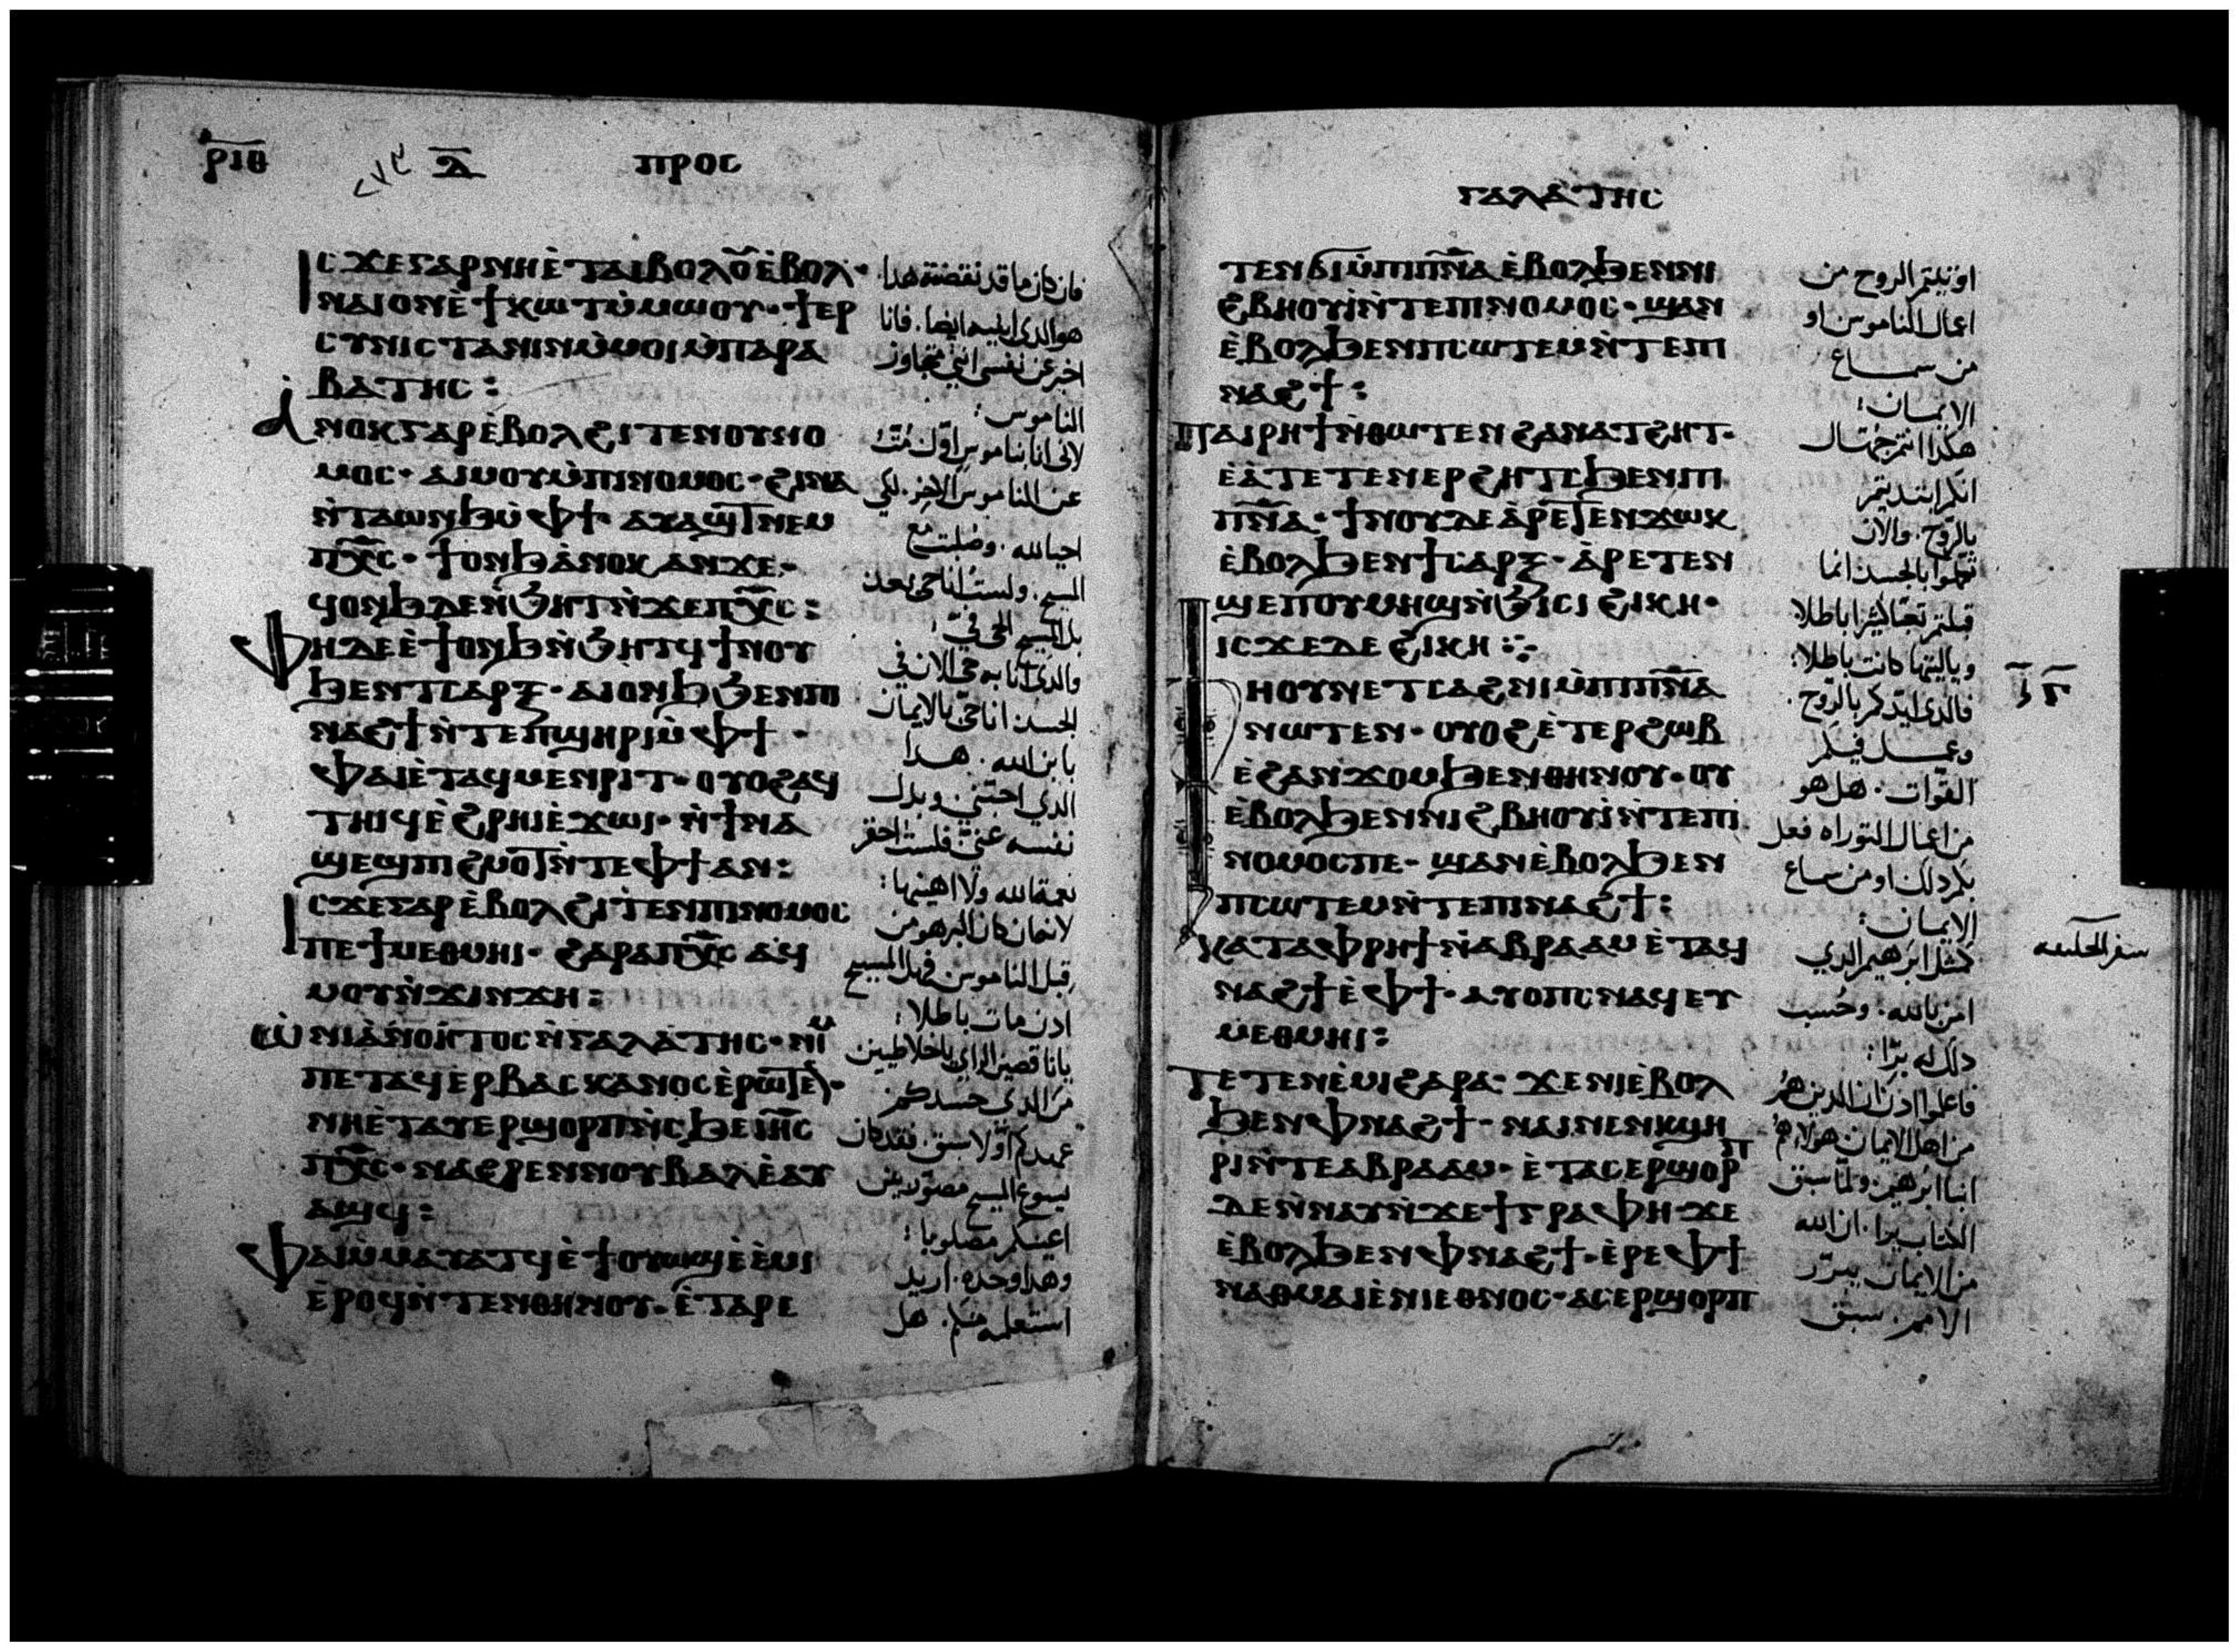 ⲣⲓⲑ ⲗ̅ ⲡⲣⲟⲥ
ⲓⲥϫⲉⲅⲁⲣⲛⲏⲉ̀ⲧⲁⲓⲃⲟⲗⲟⲩ̄ⲉ̀ⲃⲟⲗ·
ⲛⲁⲓⲟⲛⲉ̀ϯⲕⲱⲧⲙ̀ⲙⲱⲟⲩ· ϯⲉⲣ
ⲥⲩⲛⲓⲥⲧⲁⲛⲓⲛⲙ̀ⲙⲟⲓⲙ̀ⲡⲁⲣⲁ
ⲃⲁⲧⲏⲥ:
ⲁⲛⲟⲕⲅⲁⲣⲉ̀ⲃⲟⲗϩⲓⲧⲉⲛⲟⲩⲛⲟ
ⲙⲟⲥ· ⲁⲓⲙⲟⲩⲙ̀ⲡⲓⲛⲟⲙⲟⲥ· ϩⲓⲛⲁ
ⲛ̀ⲧⲁⲱⲛϧⲙ̀ⲫϯ· ⲁⲩⲁϣⲧ̅ⲛⲉⲙ
ⲡⲭ̅ⲥ· ϯⲟⲛϧⲁⲛⲟⲕ ⲁⲛϫⲉ·
ϥⲟⲛϧⲇⲉⲛ̀ϧⲏⲧⲛ̀ϫⲉⲡⲭ̅ⲥ:
ⲫⲏⲇⲉⲉ̀ϯⲟⲛϧⲛ̀ϧⲏⲧϥ ϯⲛⲟⲩ
ϧⲉⲛⲧⲥⲁⲣⲝ· ⲁⲓⲟⲛϧϧⲉⲛⲡⲓ
ⲛⲁϩϯⲛ̀ⲧⲉⲡϣⲏⲣⲓⲙ̀ⲫϯ·
ⲫⲁⲓⲉ̀ⲧⲁϥⲙⲉⲛⲣⲓⲧ· ⲟⲩⲟϩⲁϥ
ⲧⲏⲓϥⲉ̀ϩⲣⲏⲓⲉ̀ϫⲱⲓ· ⲛ̀ϯⲛⲁ
ϣⲉϣⲡϩⲙⲟⲧ̅ⲛ̀ⲧⲉⲫϯⲁⲛ:
ⲓⲥϫⲉⲅⲁⲣ ⲉ̀ⲃⲟⲗϩⲓⲧⲉⲛⲡⲓⲛⲟⲙⲟⲥ
ⲡⲉϯⲙⲉⲑⲙⲏⲓ· ϩⲁⲣⲁⲡⲭ̅ⲥ ⲁϥ
ⲙⲟⲩⲛ̀ϫⲓⲛϫⲏ:
ⲱ̀ⲛⲓⲁ̀ⲛⲟⲏⲧⲟⲥⲛ̀ⲅⲁⲗⲁⲧⲏⲥ· ⲛⲓⲙ
ⲡⲉⲧⲁϥⲉⲣⲃⲁⲥⲕⲁⲛⲟⲥⲉ̀ⲣⲱⲧ̅ⲉⲛ·
ⲛⲏⲉ̀ⲧⲁⲩⲉⲣϣⲟⲣⲡⲛ̀ⲥϧⲉⲓⲏ̅ⲥ
ⲡⲭ̅ⲥ· ⲛⲁϩⲣⲉⲛⲛⲟⲩⲃⲁⲗⲉ̀ⲁⲩ
ⲁϣϥ:
ⲫⲁⲓⲙ̀ⲙⲁⲩⲁⲧϥⲉ̀ϯⲟⲩⲱϣⲉ̀ⲉ̀ⲙⲓ
ⲉ̀ⲣⲟϥⲛ̀ⲧⲉⲛⲑⲏⲛⲟⲩ· ⲉ̀ⲧⲁⲣⲉ
فان كان ما قد نقضته هدا
هو الدي ابنيه ايضا. فانا
اخبر عن نفسي انني متجاوز
الناموس:
لاني انا بناموس اول مت
عن الناموس الاخر. لكي
احيا لله. وصلبت مع
المسيح. ولست انا حي بعد
بل المسيح الحي في:
والدي انا به حي الان في
الجسد انا حي بالايمان
بابن الله. هدا
الدي احبني وبدل
نفسه عني فلست احقر
نعمة الله ولا اهينها:
لانه ان كان البر هو من
قبل الناموس فهل المسيح
ادن مات باطلا:
يا ناقصين الراي يا غلاطيين
من الدي حسدكم
عهدكم اولا سبق. فقد كان
يسوع المسيح مصور بين
اعينكم مصلوبا:
وهدا وحده. اريد
استعلمه منكم. هل
ⲅⲁⲗⲁⲧⲏⲥ
ⲧⲉⲛϭⲓⲙ̀ⲡⲓⲡⲛ̅ⲁ ⲉ̀ⲃⲟⲗϧⲉⲛⲛⲓ
ϩⲃⲏⲟⲩⲓ̀ⲛ̀ⲧⲉⲡⲓⲛⲟⲙⲟⲥ· ϣⲁⲛ
ⲉ̀ⲃⲟⲗϧⲉⲛⲡⲥⲱⲧⲉⲙⲛ̀ⲧⲉⲡⲓ
ⲛⲁϩϯ:
ⲡⲁⲓⲣⲏϯⲛ̀ⲑⲱⲧⲉⲛ ϩⲁⲛⲁⲧϩⲏⲧ·
ⲉ̀ⲁ̀ⲧⲉⲧⲉⲛⲉⲣϩⲏⲧⲥϧⲉⲛⲡⲓ
ⲡⲛ̅ⲁ· ϯⲛⲟⲩⲇⲉⲁ̀ⲣⲉⲧ̅ⲉⲛϫⲱⲕ
ⲉ̀ⲃⲟⲗϧⲉⲛϯⲥⲁⲣⲝ· ⲁ̀ⲣⲉⲧⲉⲛ
ϣⲉⲡⲟⲩⲙⲏϣⲛ̀ϧⲓⲥⲓ ϩⲓⲕⲏ·
ⲓⲥϫⲉⲇⲉ ϩⲓⲕⲏ:
ⲫⲏⲟⲩⲛⲉⲧⲥⲁϩⲛⲓⲙ̀ⲡⲓⲡⲛ̅ⲁ
ⲛⲱⲧⲉⲛ· ⲟⲩⲟϩⲉ̀ⲧⲉⲣϩⲱⲃ
ⲉ̀ϩⲁⲛϫⲟⲙϧⲉⲛⲑⲏⲛⲟⲩ· ⲟⲩ
ⲉ̀ⲃⲟⲗϧⲉⲛⲛⲓϩⲃⲏⲟⲩⲓ̀ⲛ̀ⲧⲉⲡⲓ
ⲛⲟⲙⲟⲥⲡⲉ· ϣⲁⲛⲉ̀ⲃⲟⲗϧⲉⲛ
ⲡⲥⲱⲧⲉⲙⲛ̀ⲧⲉⲡⲓⲛⲁϩϯ:
ⲕⲁⲧⲁⲫⲣⲏϯⲛ̀ⲁⲃⲣⲁⲁⲙ ⲉ̀ⲧⲁϥ
ⲛⲁϩϯⲉ̀ⲫϯ· ⲁⲩⲟⲡⲥⲛⲁϥⲉⲩ
ⲙⲉⲑⲙⲏⲓ:
ⲧⲉⲧⲉⲛⲉ̀ⲙⲓϩⲁⲣⲁ· ϫⲉⲛⲓⲉ̀ⲃⲟⲗ
ϧⲉⲛⲫⲛⲁϩϯ· ⲛⲁⲓⲛⲉⲛⲓⲕϣⲏ
ⲣⲓⲛ̀ⲧⲉⲁⲃⲣⲁⲁⲙ· ⲉ̀ⲧⲁⲥⲉⲣϣⲟⲣⲡ
ⲇⲉⲛ̀ⲛⲁⲩⲛ̀ϫⲉϯⲅⲣⲁⲫⲏ· ϫⲉ
ⲉ̀ⲃⲟⲗϧⲉⲛⲫⲛⲁϩϯ· ⲉ̀ⲣⲉⲫϯ
ⲛⲁⲑⲙⲁⲓⲉ̀ⲛⲓⲉⲑⲛⲟⲥ· ⲁⲥⲉⲣϣⲟⲣⲡ
اونيلتم الروح من
اعمال الناموس او
من سماع
الايمان:
هكدا انتم جهال
انكم ابتديتم
بالروح. والان
تكملوا بالجسد انما
قبلتم تعبا كثيرا باطلا
وياليتها كانت باطلا:
فالدي ايدكم بالروح.
وعمل فيكم
القوات. هل هو
من اعمال التوراه فعل
بكم دلك او من سماع
الايمان:
كمثل ابرهيم الدي
امن بالله. وحسبت
دلك له برا:
فاعلموا ادن ان الدين هم
من اهل الايمان هولاء هم
ابنا ابرهيم. ولما سبق
الكتاب يرا. ان الله
من الايمان يبرر
الامم. سبق
سفر الخليقه